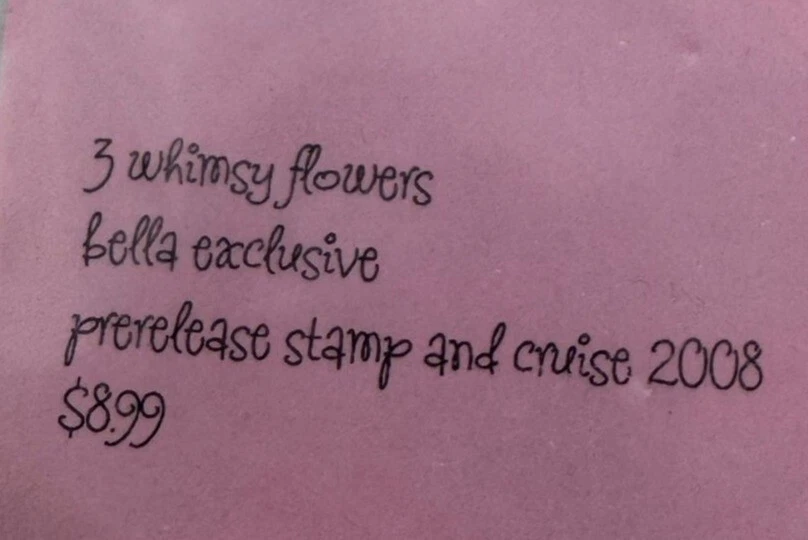 3 whimsy flowers
bella exclusive
prerelease stamp and cruise 2008
$8.99